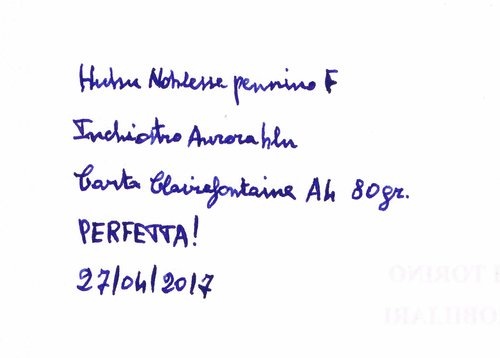 Huber Noblesse pennino F
Inchiostro Aurora blu
Carta Clairefontaine A4 80gr.
PERFETTA!
27/04/2017
TORINO
OBILIARI